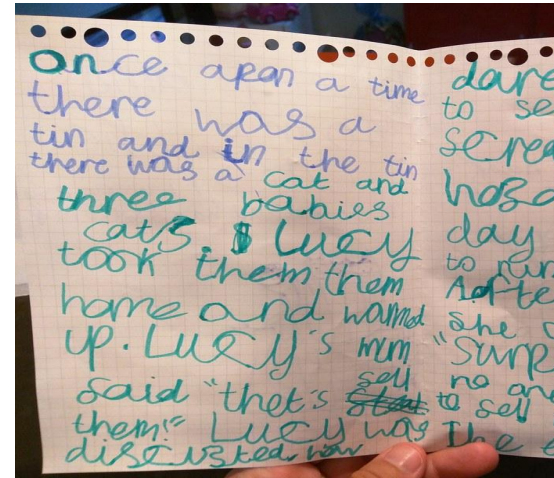 once apon a time
there was a
tin and in the tin
there was a cat and
three babies
cats. Lucy
took them them
home and warmed
up. Lucy's mum
said "thet's sell
them!" Lucy was
discusted, now
dare
to se
screa
day
to run
Aafte
she
"Surp
no an
to sell
The